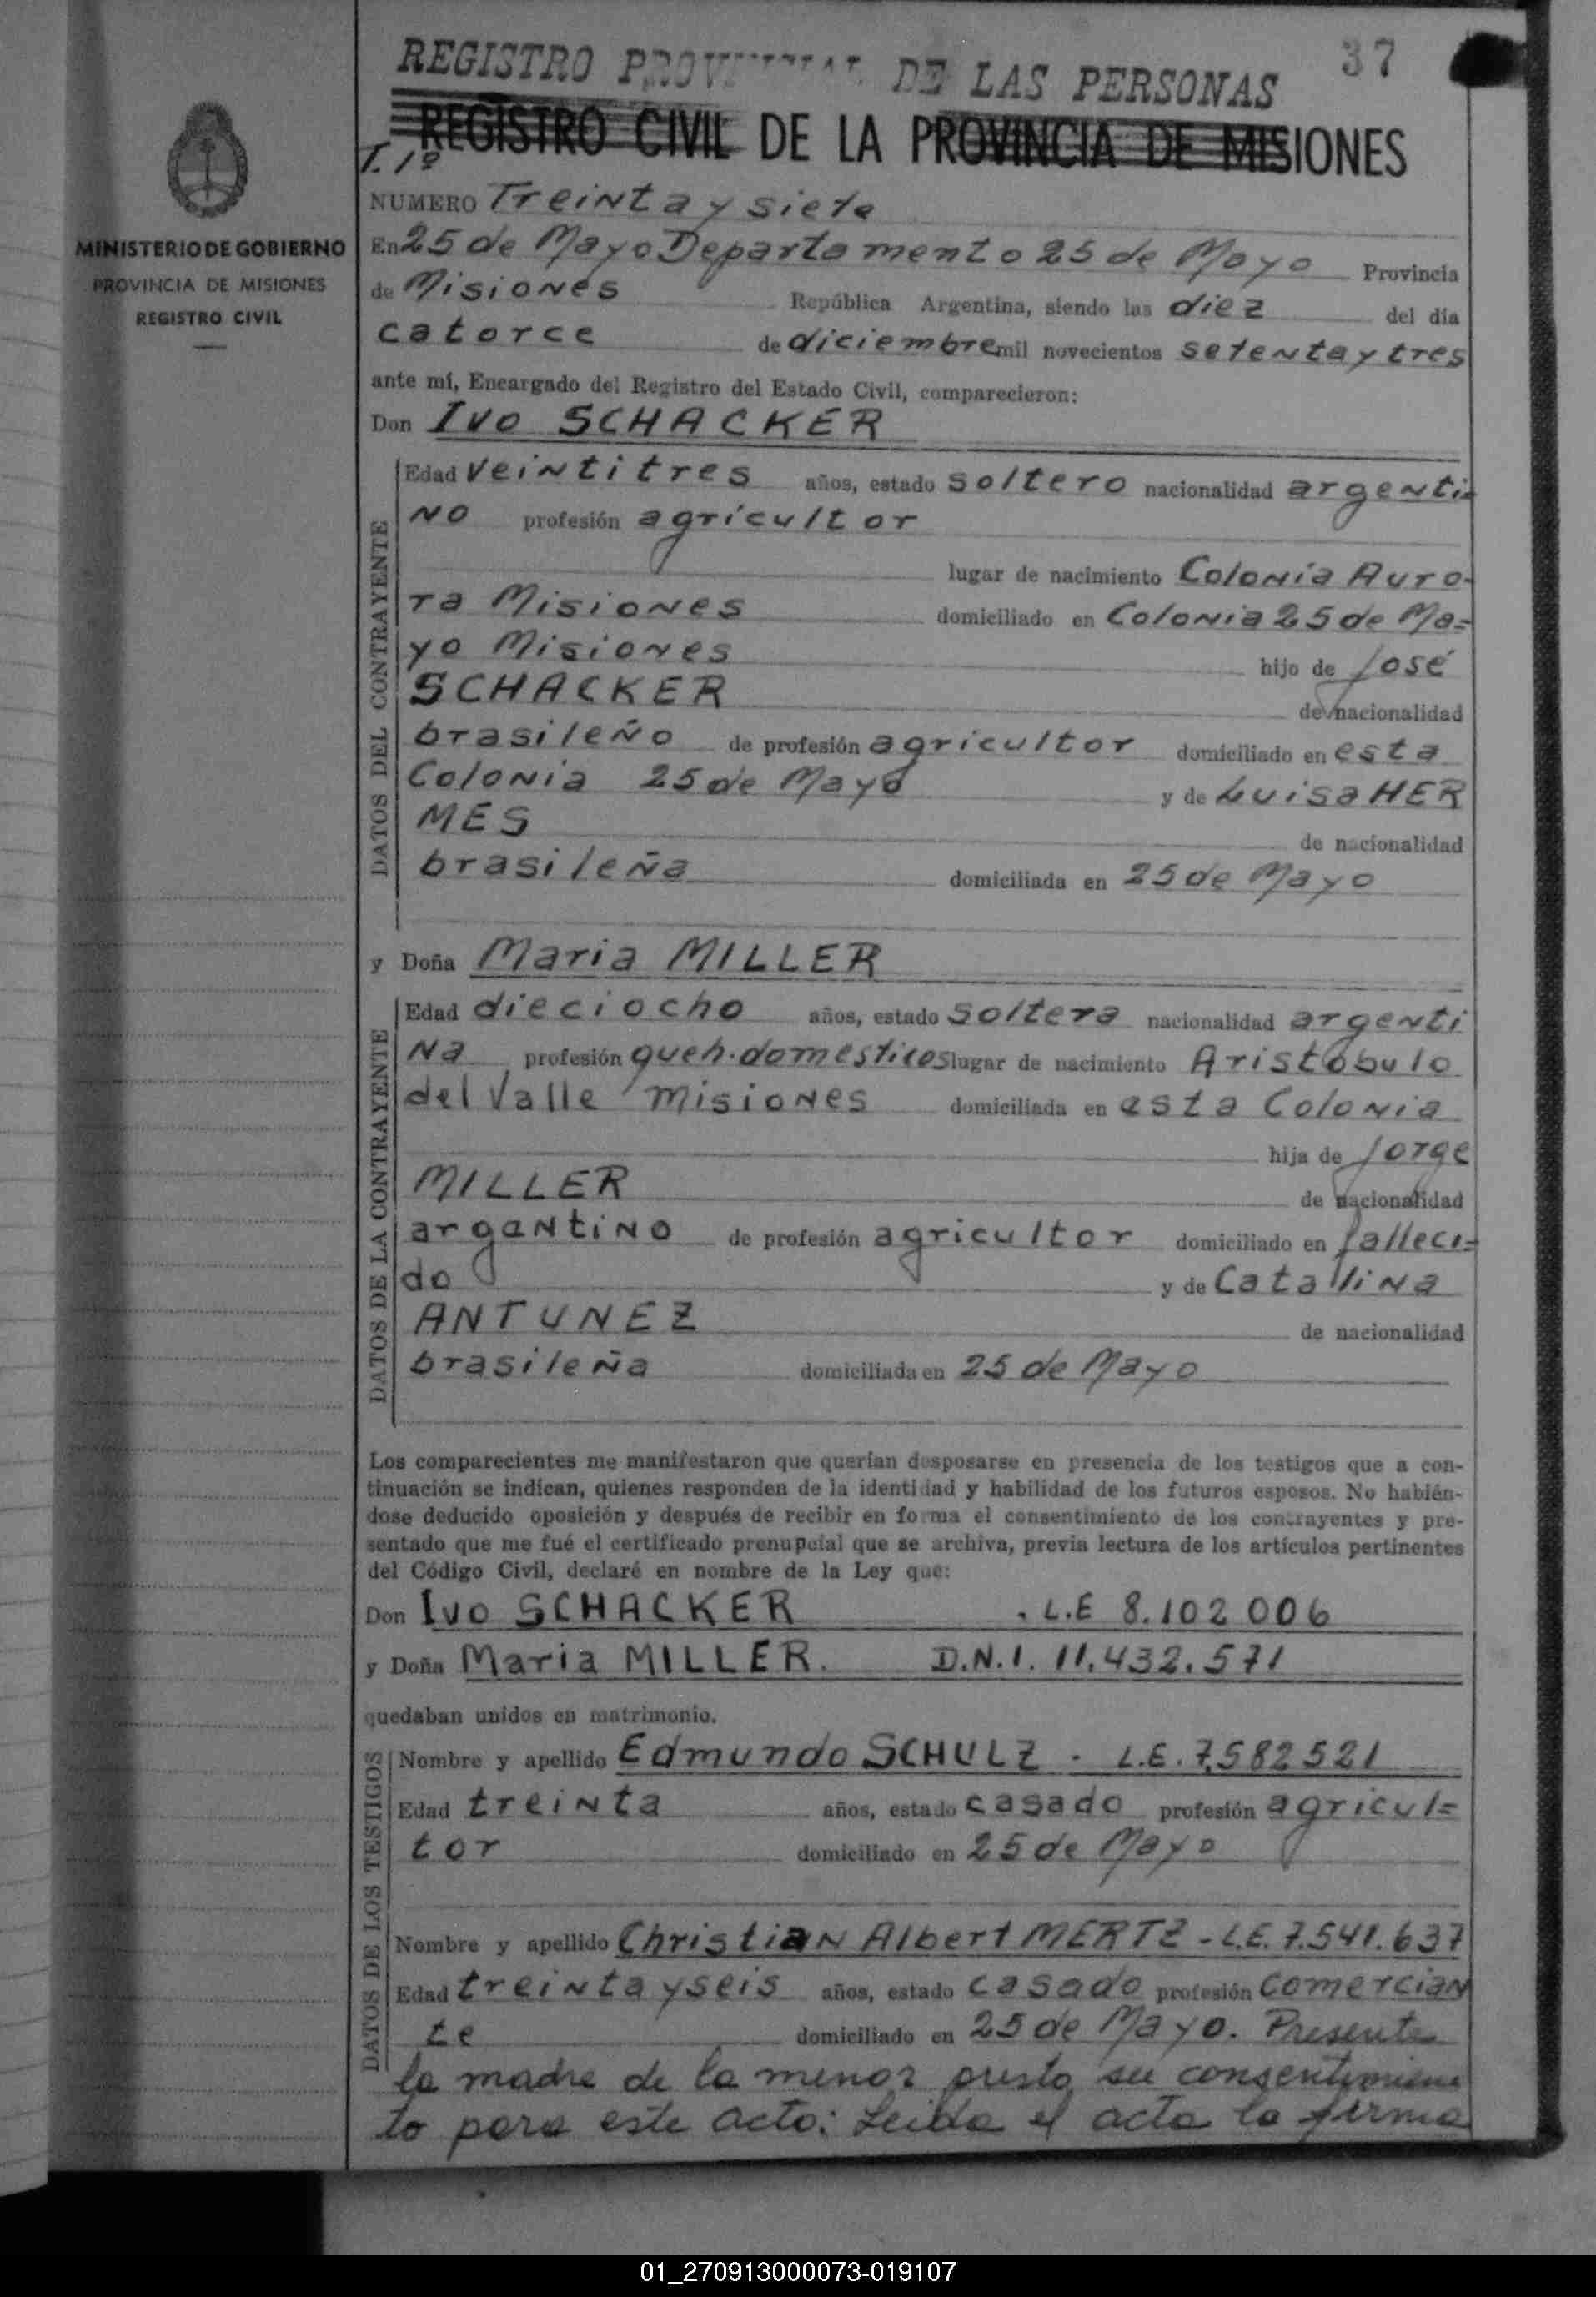 37
REGISTRO PROVINCIAL DE LAS PERSONAS
REGISTRO CIVIL DE LA PROVINCIA DE MISIONES
T. 1º
MINISTERIO DE GOBIERNO
PROVINCIA DE MISIONES
REGISTRO CIVIL
NUMERO Treinta y siete
En 25 de Mayo Departamento 25 de Mayo Provincia
de Misiones República Argentina, siendo las diez del día
catorce de diciembre mil novecientos setenta y tres
ante mí, Encargado del Registro del Estado Civil, comparecieron:
Don Ivo SCHACKER
DATOS DEL CONTRAYENTE
Edad veintitres años, estado soltero nacionalidad argenti=
no profesión agrícultor
lugar de nacimiento Colonia Auro-
ra Misiones domiciliado en Colonia 25 de Ma=
yo Misiones hijo de José
SCHACKER de nacionalidad
brasileño de profesión agricultor domiciliado en esta
Colonia 25 de Mayo y de Luisa HER
MES de nacionalidad
brasileña domiciliada en 25 de Mayo
y Doña Maria MILLER
DATOS DE LA CONTRAYENTE
Edad dieciocho años, estado soltera nacionalidad argenti
na profesión queh. domesticos lugar de nacimiento Aristobulo
del Valle Misiones domiciliada en esta Colonia
hija de Jorge
MILLER de nacionalidad
argantino de profesión agricultor domiciliado en falleci=
do y de Catallina
ANTUNEZ de nacionalidad
brasileña domiciliada en 25 de Mayo
Los comparecientes me manifestaron que querían desposarse en presencia de los testigos que a con-
tinuación se indican, quienes responden de la identidad y habilidad de los futuros esposos. No habién-
dose deducido oposición y después de recibir en forma el consentimiento de los contrayentes y pre-
sentado que me fué el certificado prenupcial que se archiva, previa lectura de los artículos pertinentes
del Código Civil, declaré en nombre de la Ley que:
Don Ivo SCHACKER . L.E 8.102 006
y Doña Maria MILLER. D.N.I. 11.432.571
quedaban unidos en matrimonio.
DATOS DE LOS TESTIGOS
Nombre y apellido Edmundo SCHULZ - L.E. 7.582521
Edad treinta años, estado casado profesión agricul=
tor domiciliado en 25 de Mayo
Nombre y apellido Christian Albert MERTZ - L.E. 7.541.637
Edad treinta y seis años, estado casado profesión comercian
te domiciliado en 25 de Mayo. Presente
la madre de la menor presta su consentimien
to para este acto: Leida el acta la firma
01_270913000073-019107